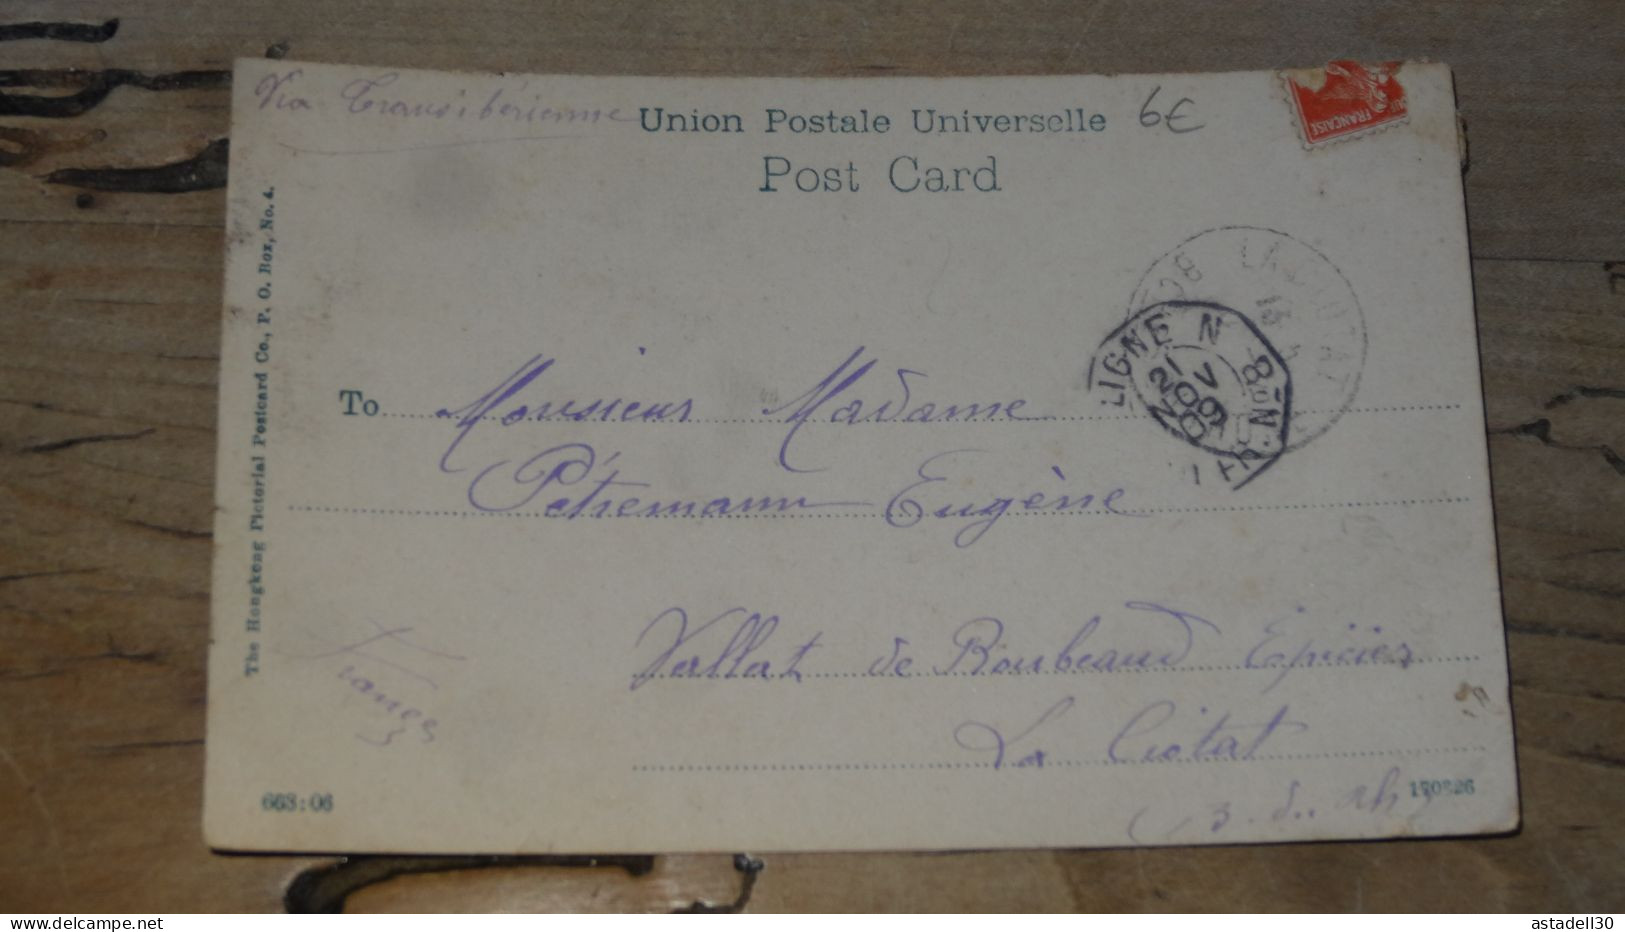 Via Transibérienne
Union Postale Universelle
6€
Post Card
FRANÇAISE
The Hongkong Pictorial Postcard Co., P. O. Box, No. 4.
LA CIOTAT
13
LIGNE N
PAQ. FR. Nº 8
1
NOV
09
To Monsieur Madame
Pétremann Eugène
Vallat de Roubeaud Epicier
La Ciotat
B. du Rh
France
663:06
170326
www.delcampe.net
astadell30